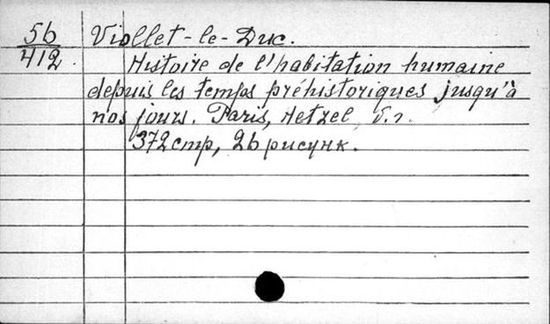 56
412.
Viollet-le-Duc.
Histoire de l'habitation humaine
depuis les temps préhistoriques jusqu'à
nos jours. Paris, Hetzel
372 стр, 26 рисунк.